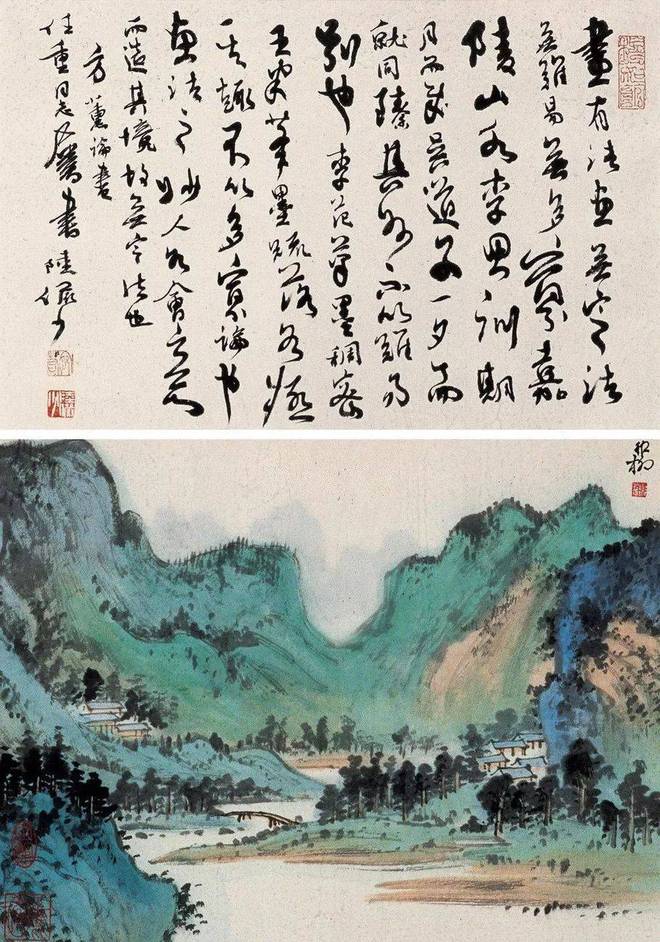 畫有法畫無定法
無難易無多寡嘉
陵山水李思訓期
月而成吳道子一夕而
就同臻其妙不以難易
別也李范筆墨稠密
王米筆墨疏落各極
其趣不以多寡論也
畫法之妙人各會
而造其境故無定法也
方薰論畫
任重同志屬書 陸儼少